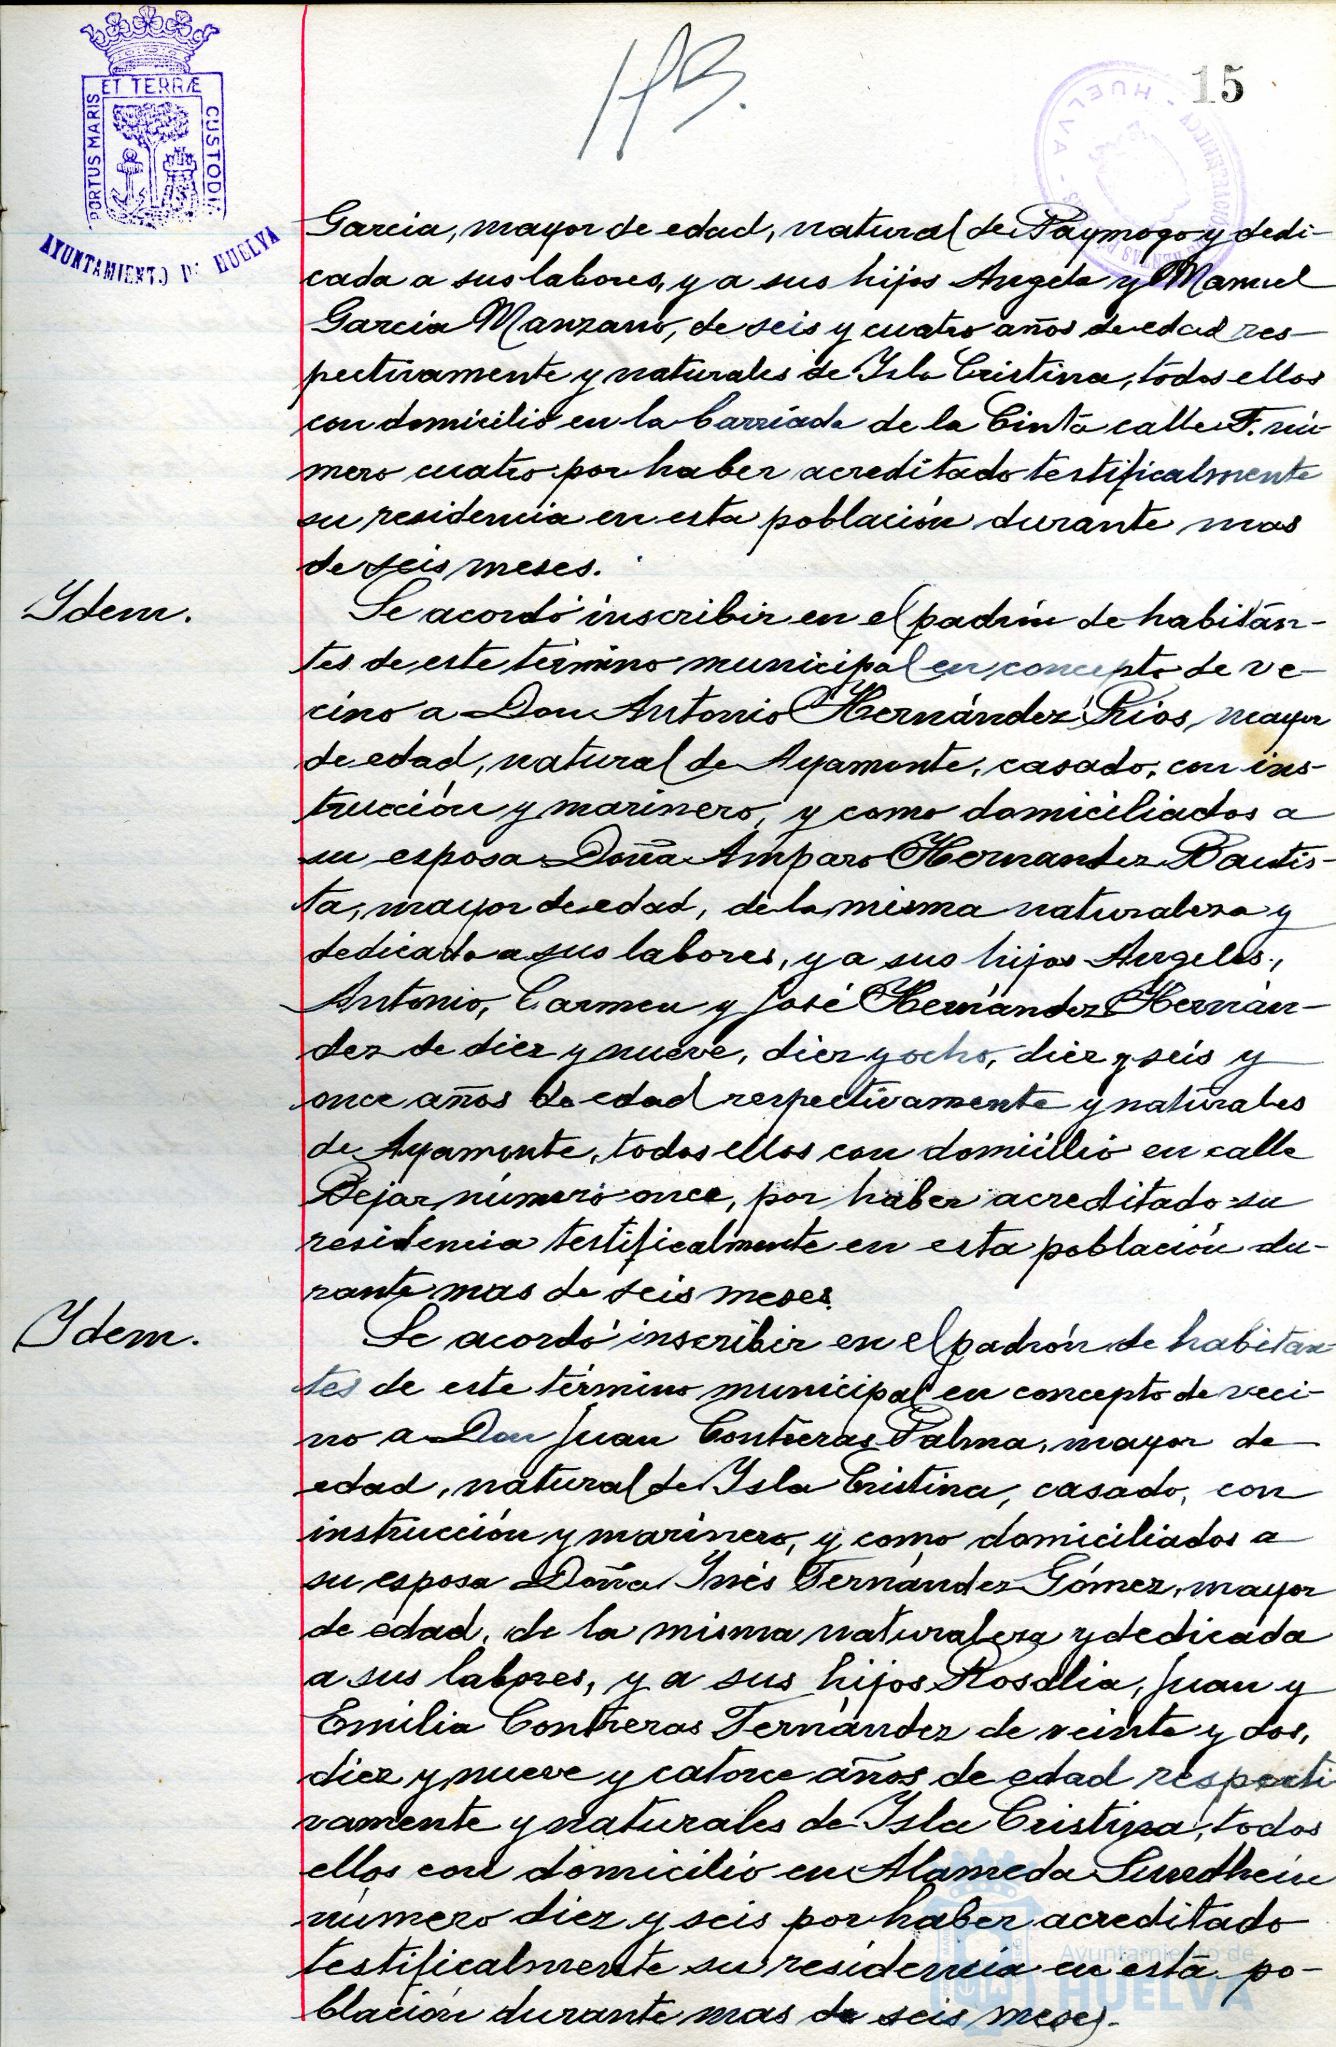 ET TERRÆ
PORTUS MARIS
CUSTODI
AYUNTAMIENTO DE HUELVA
15
HUELVA
García, mayor de edad, natural de Paymogo y dedi-
cada a sus labores, y a sus hijos Angela y Manuel
García Manzano, de seis y cuatro años de edad res-
pectivamente y naturales de Isla Cristina, todos ellos
con domicilio en la barriada de la Cinta calle F. nú-
mero cuatro por haber acreditado testificalmente
su residencia en esta población durante mas
de seis meses.
Ydem.
Se acordó inscribir en el padrón de habitan-
tes de este término municipal en concepto de ve-
cino a Don Antonio Hernández Ríos, mayor
de edad, natural de Ayamonte, casado, con ins-
trucción y marinero, y como domiciliados a
su esposa Doña Amparo Hernandez Bautis-
ta, mayor de edad, de la misma naturaleza y
dedicada a sus labores, y a sus hijos Angeles,
Antonio, Carmen y José Hernández Hernán-
dez de diez y nueve, diez y ocho, diez y seis y
once años de edad respectivamente y naturales
de Ayamonte, todos ellos con domicilio en calle
Bejar número once, por haber acreditado su
residencia testificalmente en esta población du-
rante mas de seis meses.
Ydem.
Se acordó inscribir en el padrón de habitan-
tes de este término municipal en concepto de veci-
no a Don Juan Contreras Palma, mayor de
edad, natural de Isla Cristina, casado, con
instrucción y marinero, y como domiciliados a
su esposa Doña Inés Fernández Gómez, mayor
de edad, de la misma naturaleza y dedicada
a sus labores, y a sus hijos Rosalia, Juan y
Emilia Contreras Fernández de veinte y dos,
diez y nueve y catorce años de edad respecti
vamente y naturales de Isla Cristina, todos
ellos con domicilio en Alameda Sundheim
número diez y seis por haber acreditado
testificalmente su residencia en esta po-
blación durante mas de seis meses.
Ayuntamiento de
HUELVA